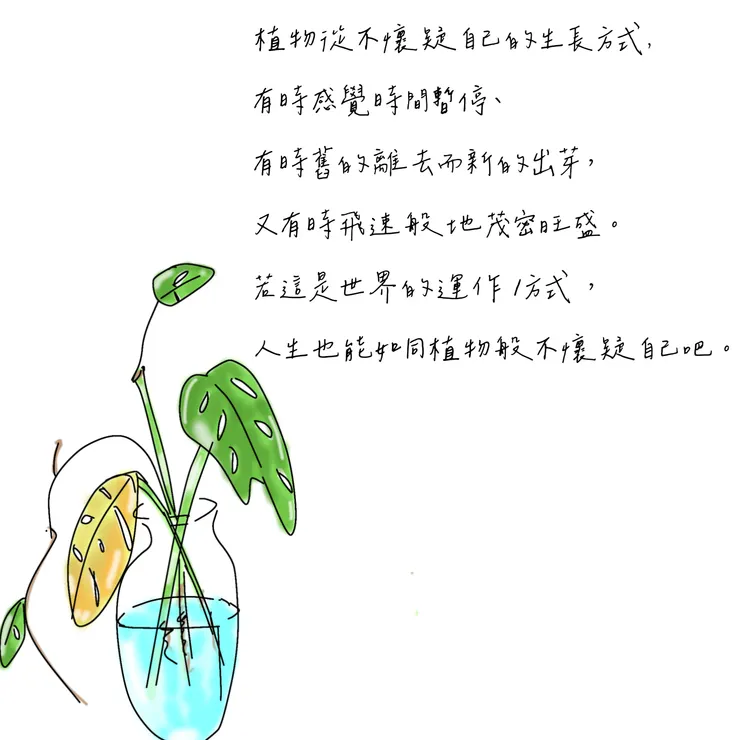 植物從不懷疑自己的生長方式,
有時感覺時間暫停、
有時舊的離去而新的出芽,
又有時飛速般地茂密旺盛。
若這是世界的運作方式,
人生也能如同植物般不懷疑自己吧。